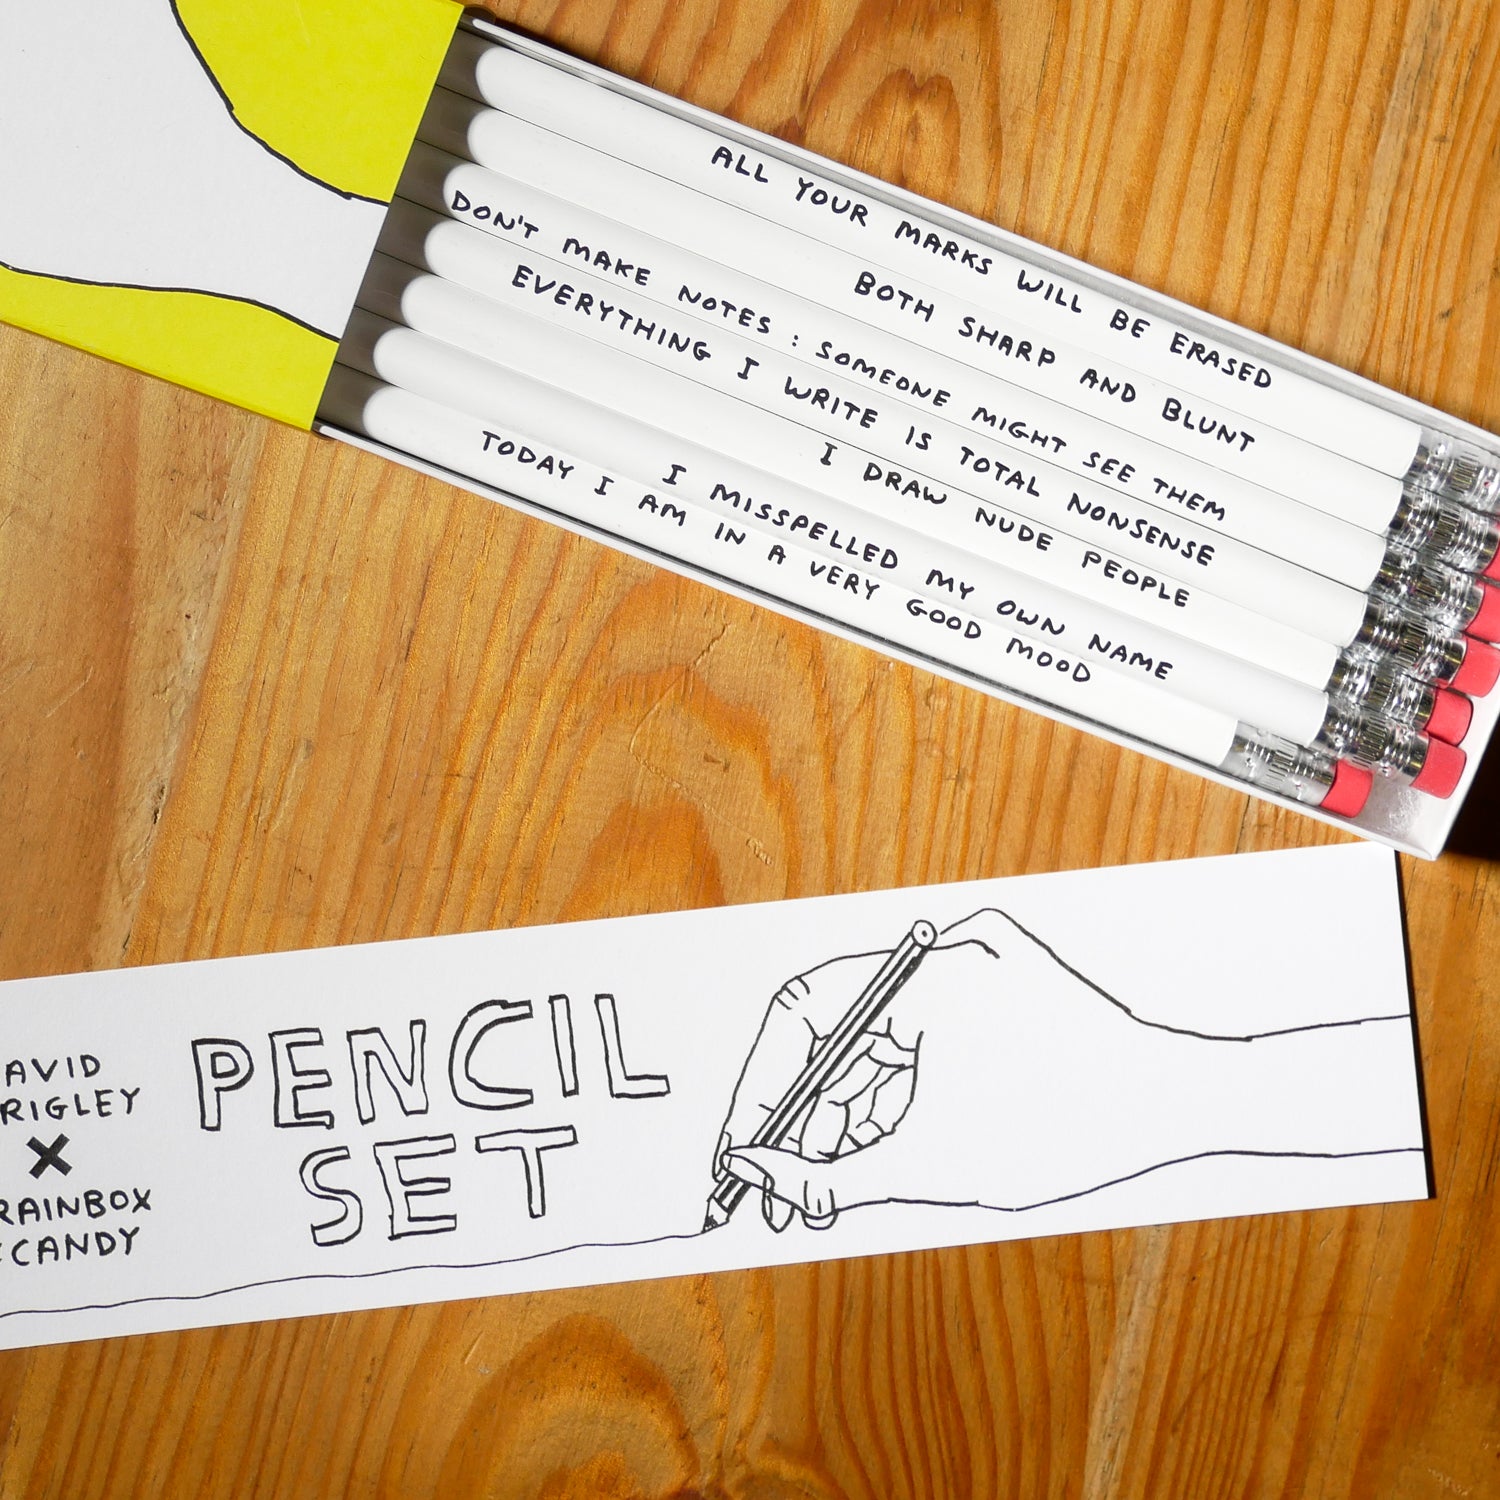 ALL YOUR MARKS WILL BE ERASED
BOTH SHARP AND BLUNT
DON'T MAKE NOTES : SOMEONE MIGHT SEE THEM
EVERYTHING I WRITE IS TOTAL NONSENSE
I DRAW NUDE PEOPLE
I MISSPELLED MY OWN NAME
TODAY I AM IN A VERY GOOD MOOD
AVID
RIGLEY
X
RAINBOX
CANDY
PENCIL
SET